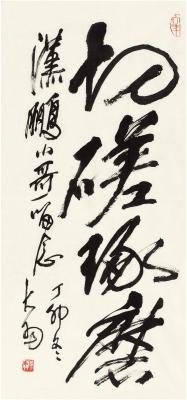 切磋琢磨
漢鵬小哥留念
丁卯冬
大羽